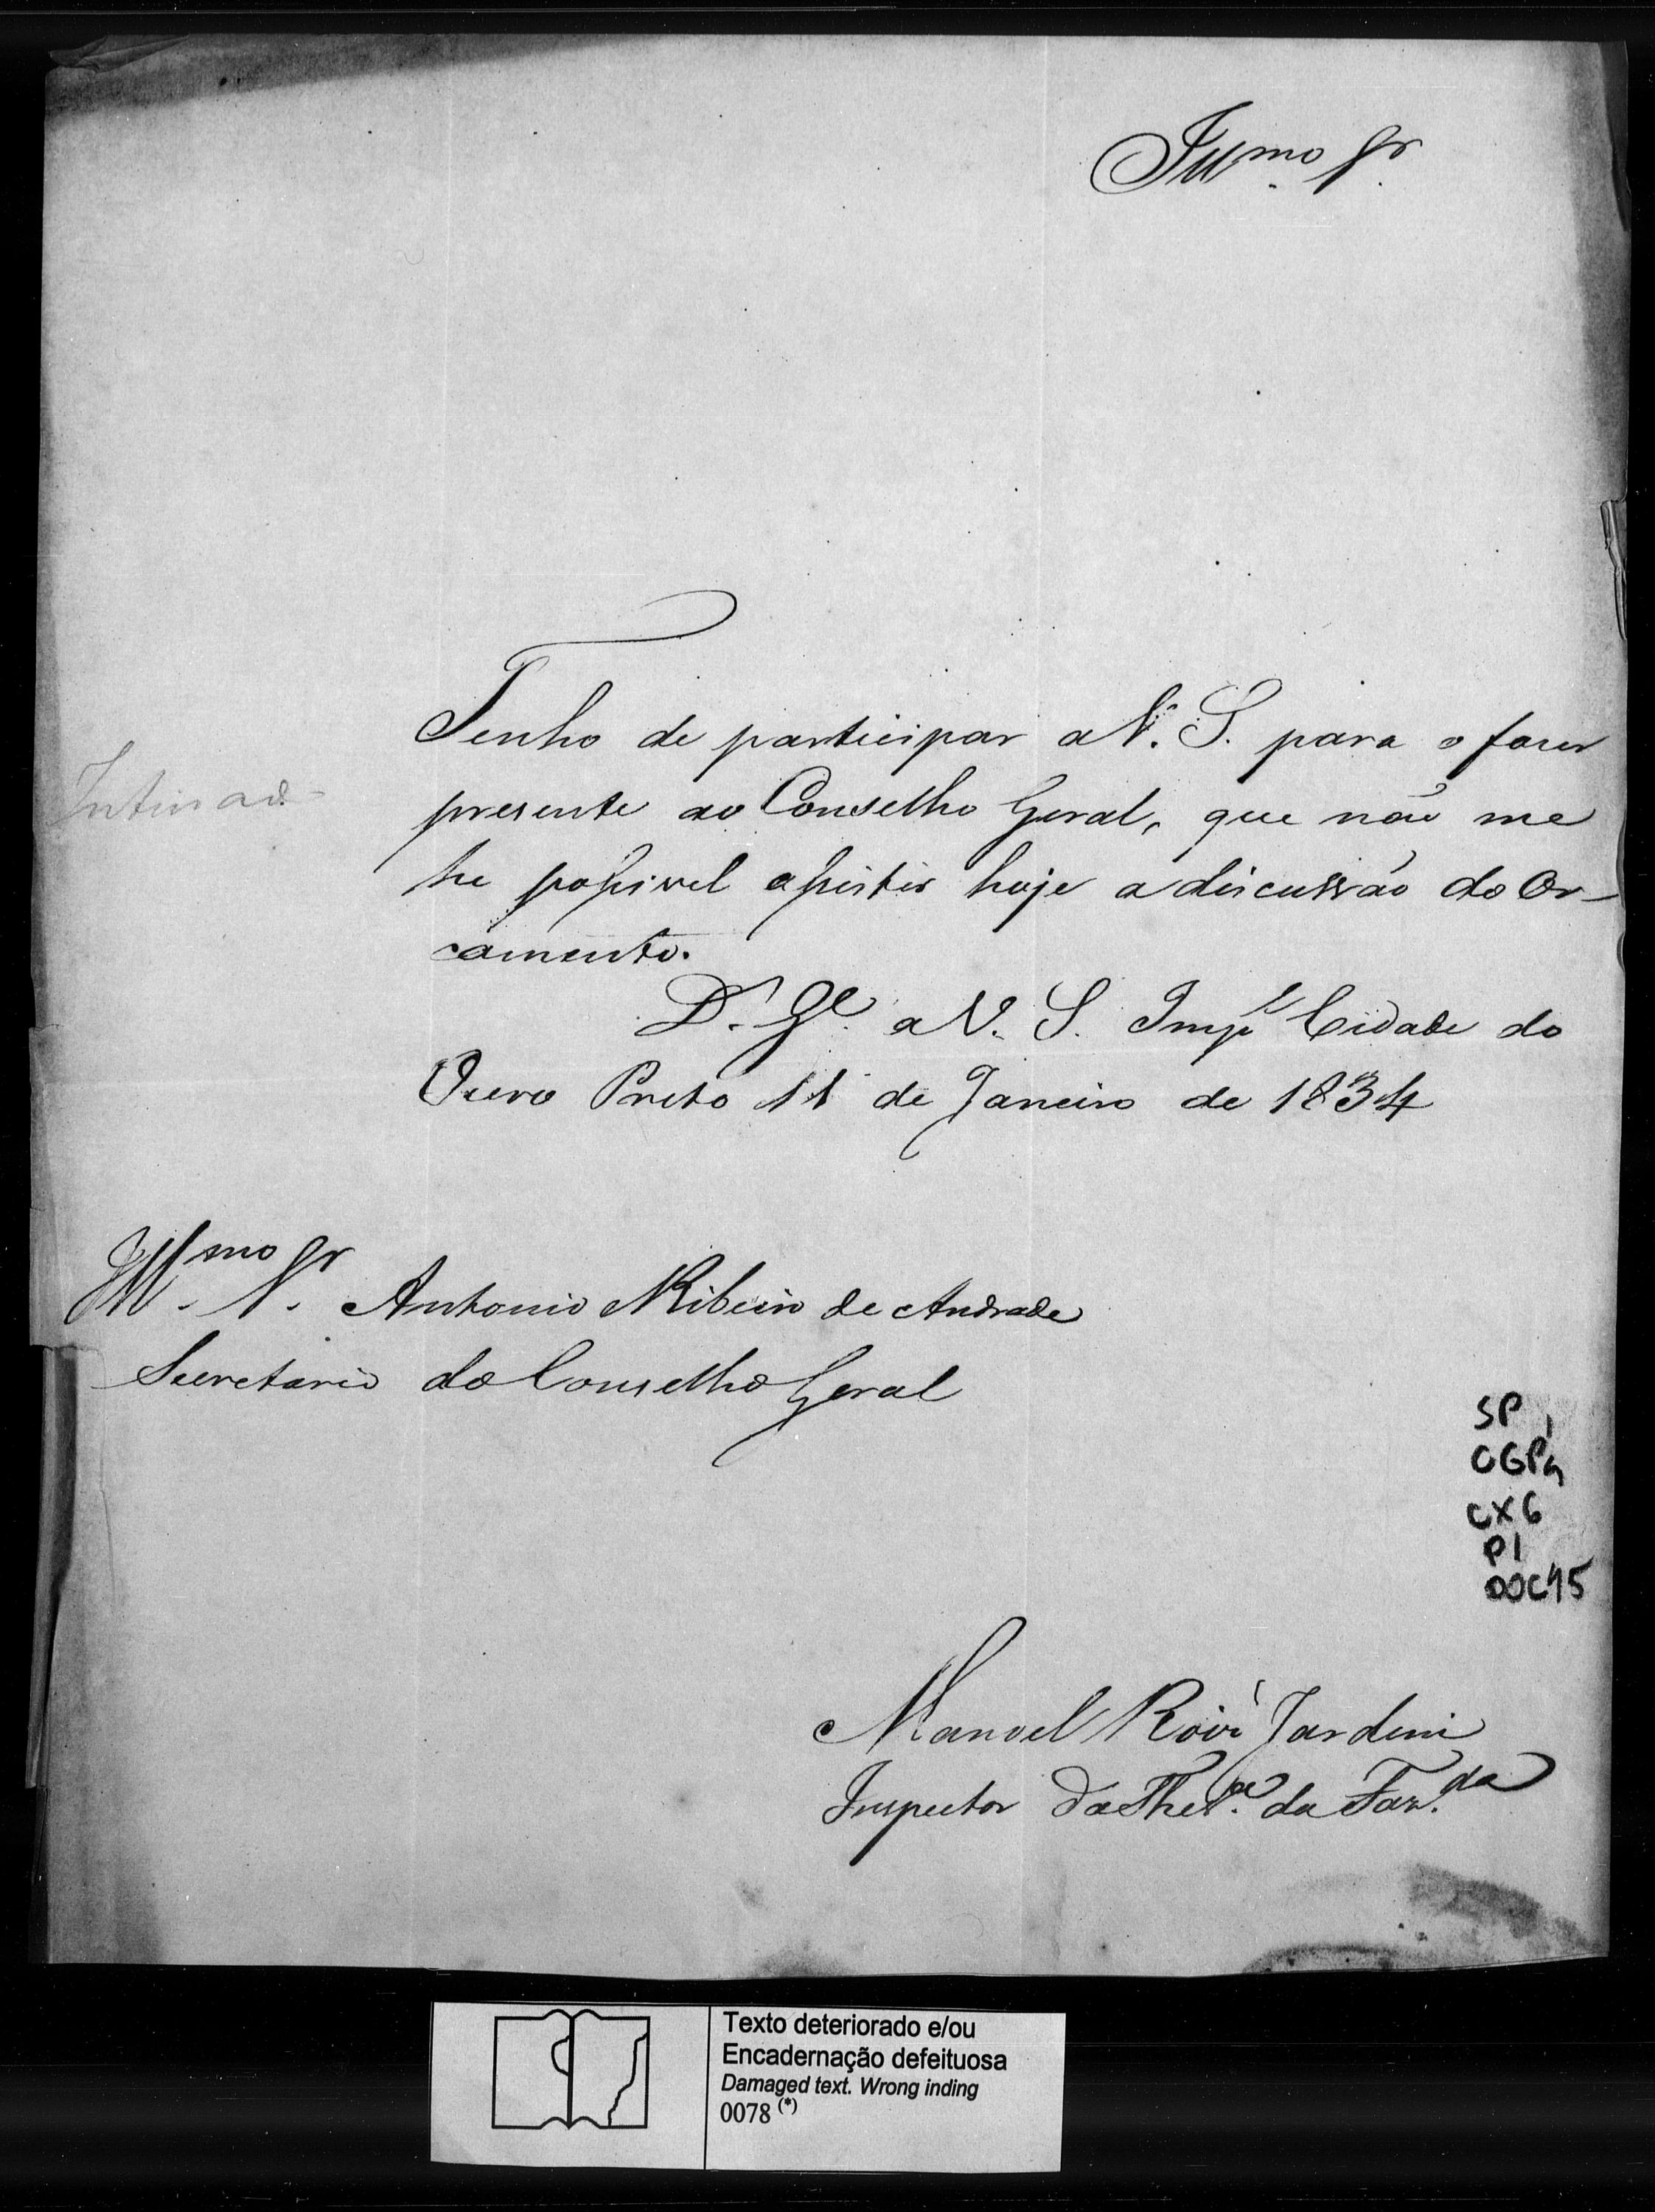 Illmo. Sr.
Tenho de participar a V. S. para o fazer
Inteirado
presente ao Conselho Geral, que não me
he possivel assistir hoje a discussão do Or-
camento.
D.s G.e a V. S. Imp.l Cidade do
Ouro Preto 11 de Janeiro de 1834
Illmo. Sr. Antonio Ribeiro de Andrade
Secretario do Conselho Geral
SP
CGP1
CX6
P1
DOC45
Manoel Roiz Jardim
Inspector da Thes.a da Faz.da
Texto deteriorado e/ou
Encadernação defeituosa
Damaged text. Wrong inding
0078 (*)